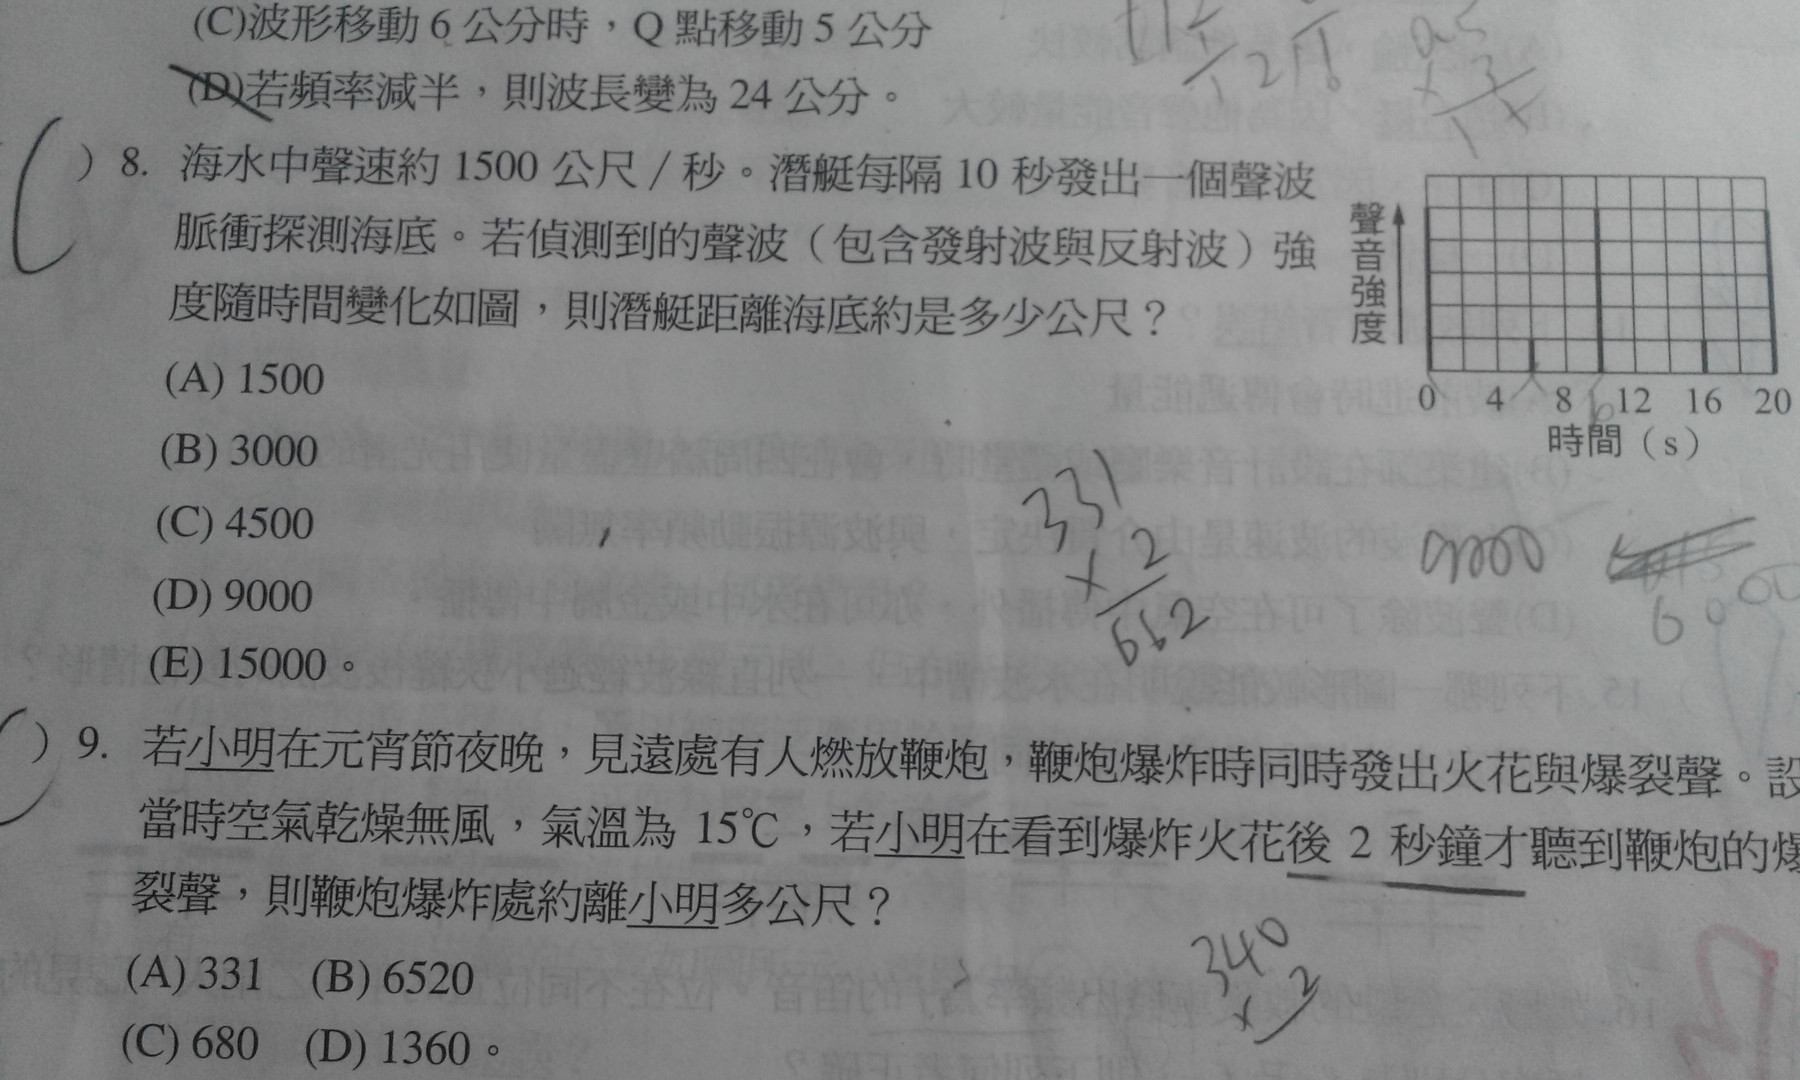 (C)波形移動 6 公分時，Q 點移動 5 公分
(D)若頻率減半，則波長變為 24 公分。
( ) 8. 海水中聲速約 1500 公尺／秒。潛艇每隔 10 秒發出一個聲波
脈衝探測海底。若偵測到的聲波（包含發射波與反射波）強
度隨時間變化如圖，則潛艇距離海底約是多少公尺？
聲音強度
0 4 8 12 16 20
時間（s）
(A) 1500
(B) 3000
(C) 4500
(D) 9000
(E) 15000。
331
× 2
662
9000
60
( ) 9. 若小明在元宵節夜晚，見遠處有人燃放鞭炮，鞭炮爆炸時同時發出火花與爆裂聲。設
當時空氣乾燥無風，氣溫為 15℃，若小明在看到爆炸火花後 2 秒鐘才聽到鞭炮的爆
裂聲，則鞭炮爆炸處約離小明多公尺？
340
× 2
(A) 331 (B) 6520
(C) 680 (D) 1360。